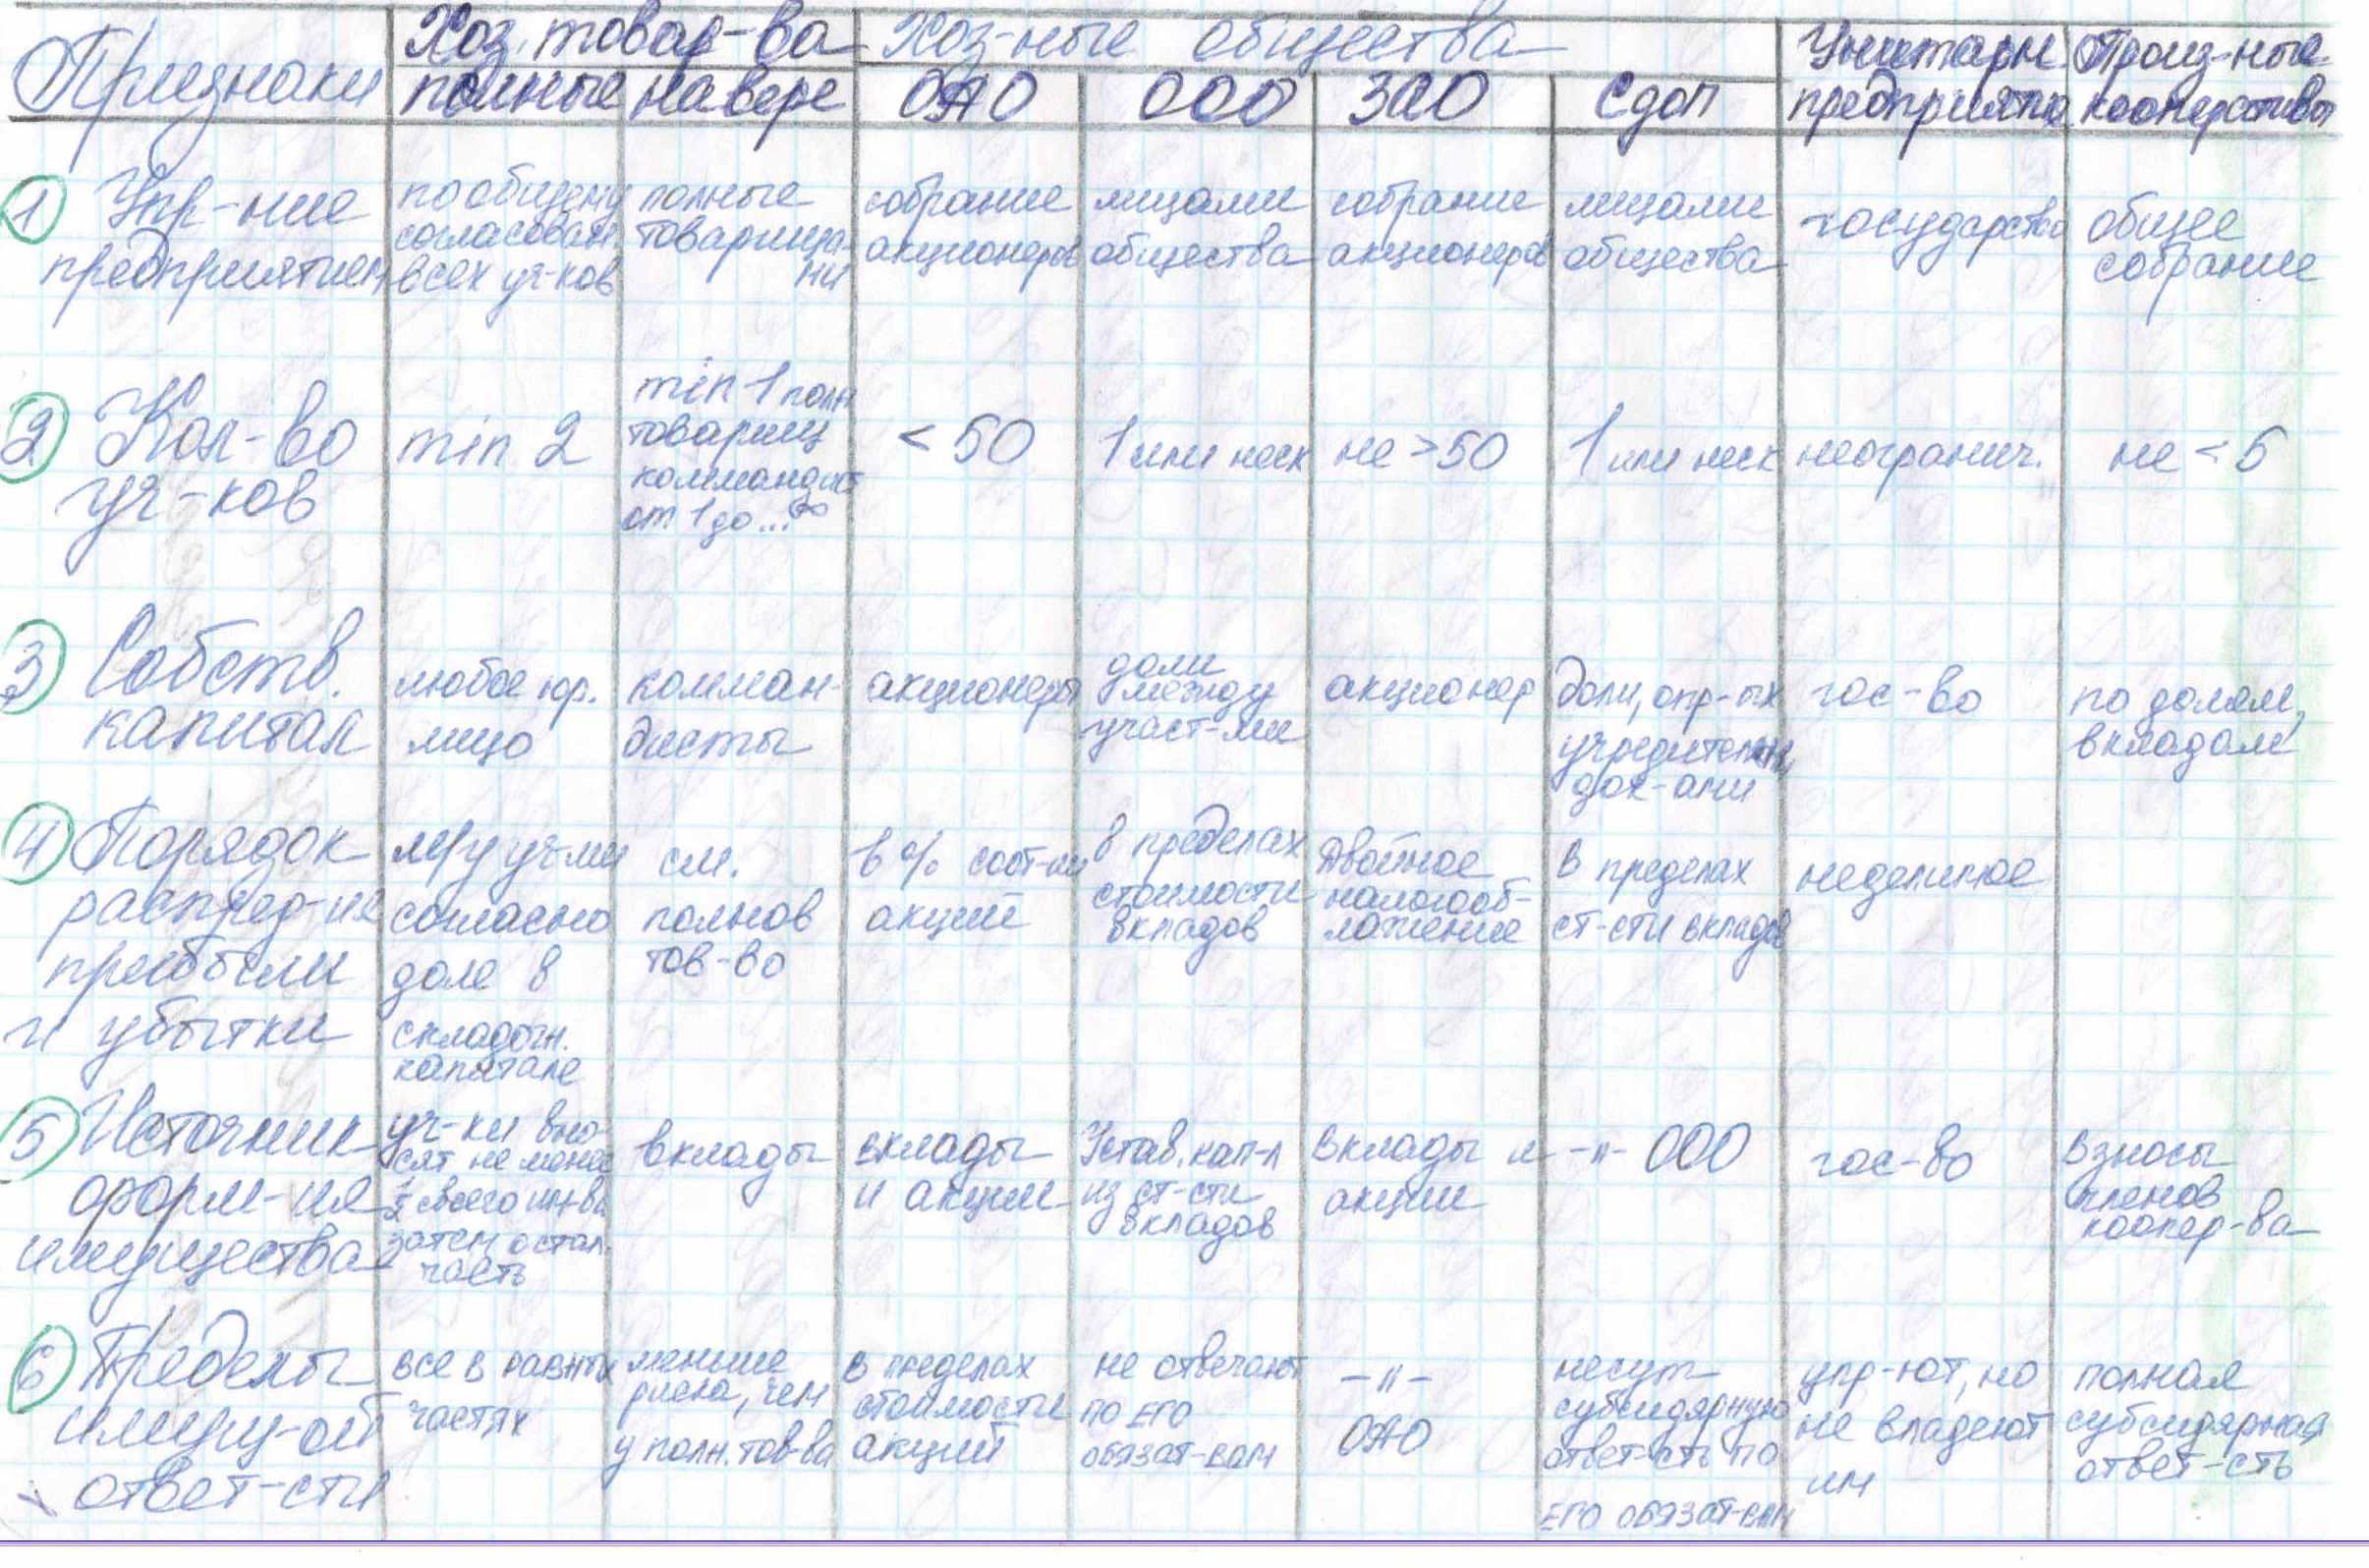 Признаки
Хоз. товар-ва
полные на вере
Хоз-ные общества
ОАО ООО ЗАО СДОП
Унитарн.
предприятия
Произ-ные
кооперативы
1 Упр-ние
предприятием
по общему
согласован.
всех уч-ков
полные
товарища-
ми
собрание
акционеров
лицами
общества
собрание
акционеров
лицами
общества
государство
общее
собрание
2 Кол-во
уч-ков
min 2
min 1 полн
товарищ
коммандист
от 1 до ... ∞
< 50
1 или неск
не > 50
1 или неск
неогранич.
не < 5
3 Собств.
капитал
любое юр.
лицо
комман-
дисты
акционеры
доли
между
участ-ми
акционер
доли, опр-ых
учредительн,
док-ами
гос-во
по долям,
вкладам
4 Порядок
распред-ия
прибыли
и убытки
м/у уч-ми
согласно
доле в
складочн.
капитале
см.
полнов
тов-во
в % соот-ии
акций
в пределах
стоимости
вкладов
Двойное
налогооб-
ложение
в пределах
ст-сти вкладов
неделимое
5 Источник
форм-ия
имущества
уч-ки вно-
сят не менее
своего им-ва
затем остал.
часть
вклады
вклады
и акции
Устав. кап-л
из ст-сти
вкладов
вклады и
акции
-"- ООО
гос-во
взносы
членов
коопер-ва
6 Пределы
имущ-ой
ответ-сти
все в равных
частях
меньше
риска, чем
у полн. тов-ва
в пределах
стоимости
акций
не отвечают
по его
обязат-вам
-"-
ОАО
несут
субсидярную
ответ-сть по
его обязат-вам
упр-ют, но
не владеют
им
полная
субсидярная
ответ-сть